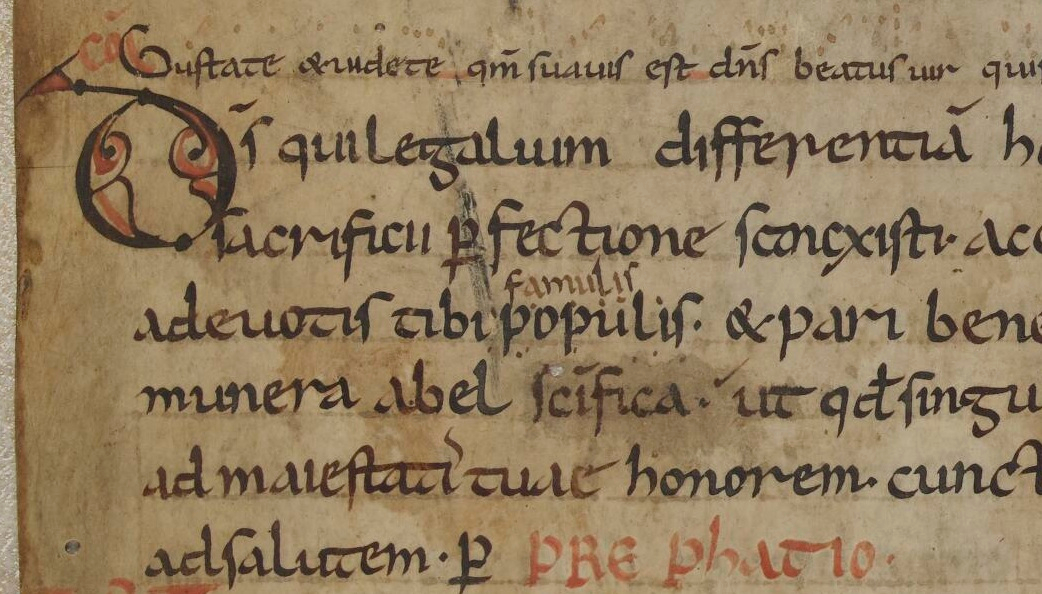 cō Gustate & uidete qm̄ suauis est dn̄s beatus uir qui
Ds̄ qui legalium differentiā ho
sacrificii ꝑfectione sanxisti· acc
famulis
adeuotis tibi populis· & pari bene
munera abel sc̄ifica· ut qđ singu
ad maiestati᾽ tuae honorem· cunct
ad salutem· ꝑ PRE phatio·